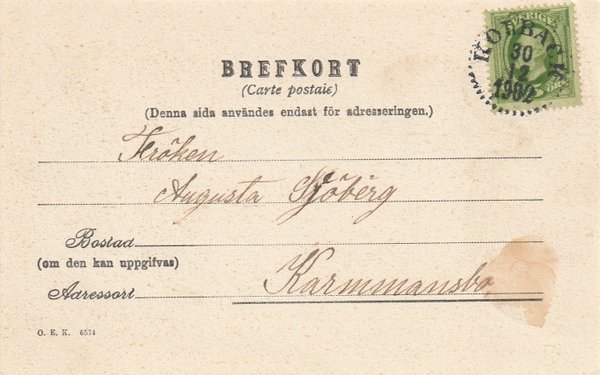 SVERIGE
KOLBÄCK
30
12
1902
BREFKORT
(Carte postale)
(Denna sida användes endast för adresseringen.)
Fröken
Augusta Sjöberg
Bostad
(om den kan uppgifvas)
Karmmansbo
Adressort
O. E. K. 6574